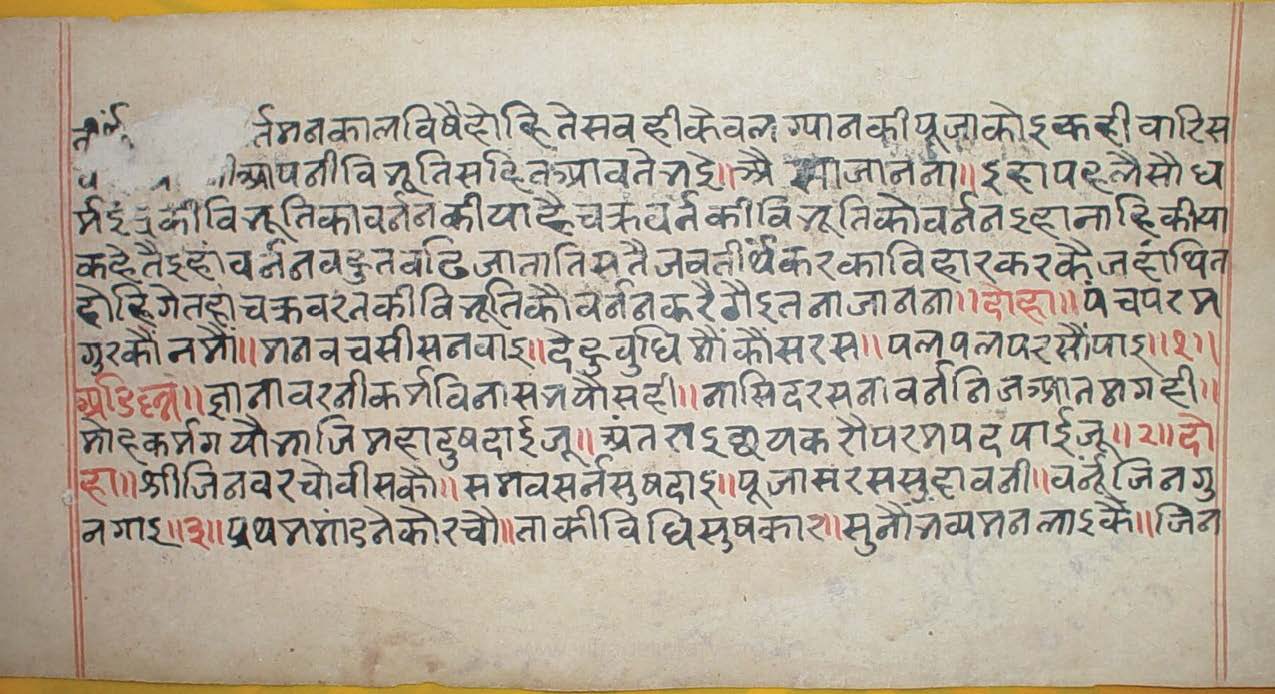 र्तमनकालविषैहोहितेसवहीकेवलग्यानकीपूजाकोइकहीवारिस
आपनीविभूतिसहितआवतेभइे॥ जानना॥इहापहलैसौध
र्मइंद्रकीविभूतिकावर्ननकीयाहैचक्रवर्तकीविभूतिकोवर्ननइहानाहिकीया
कहेतैइहांवर्ननवहुतवढिजातातिसतैजवतीर्थंकरकाविहारकरकैजहांथित
होहिगेतहांचक्रवरतकीविभूतिकौवर्ननकरैगैइतनाजानना॥दोहा॥पंचपरम
गुरकौंनमौं॥मनवचसीसनवाइ॥देहुवुधिमौंकौंसरस॥पलपलपरसौंपाइ॥१॥
अडिल्ल॥ज्ञानावरनीकर्मविनासभयौसही॥नासिदरसनावर्ननिजआतमगही॥
मोहकर्मगयौभाजिमहादुषदाईजू॥अंतराइछयकरौपरमपदपाईजू॥२॥दो
हा॥श्रीजिनवरचौवीसकौ॥समवसर्नसुषदाइ॥पूजासरससुहावनी॥वर्नूंजिनगु
नगाइ॥३॥प्रथममांडनेकोरचौ॥ताकीविधिसुषकार॥सुनौंभव्यमनलाइकैं॥जिन